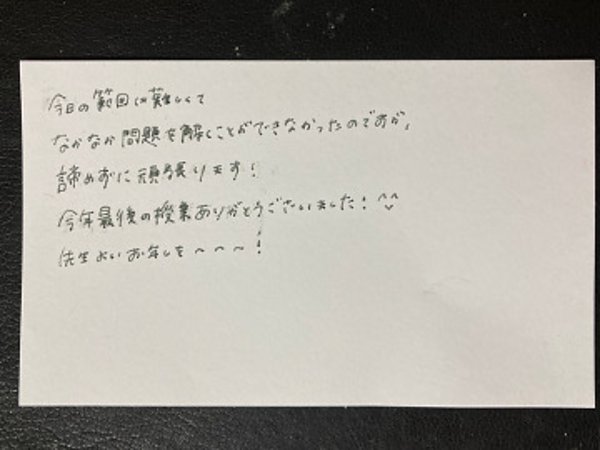 今日の範囲は難しくて
なかなか問題を解くことができなかったのですが、
諦めずに頑張ります!
今年最後の授業ありがとうございました! ^^
先生よいお年を〜〜〜!